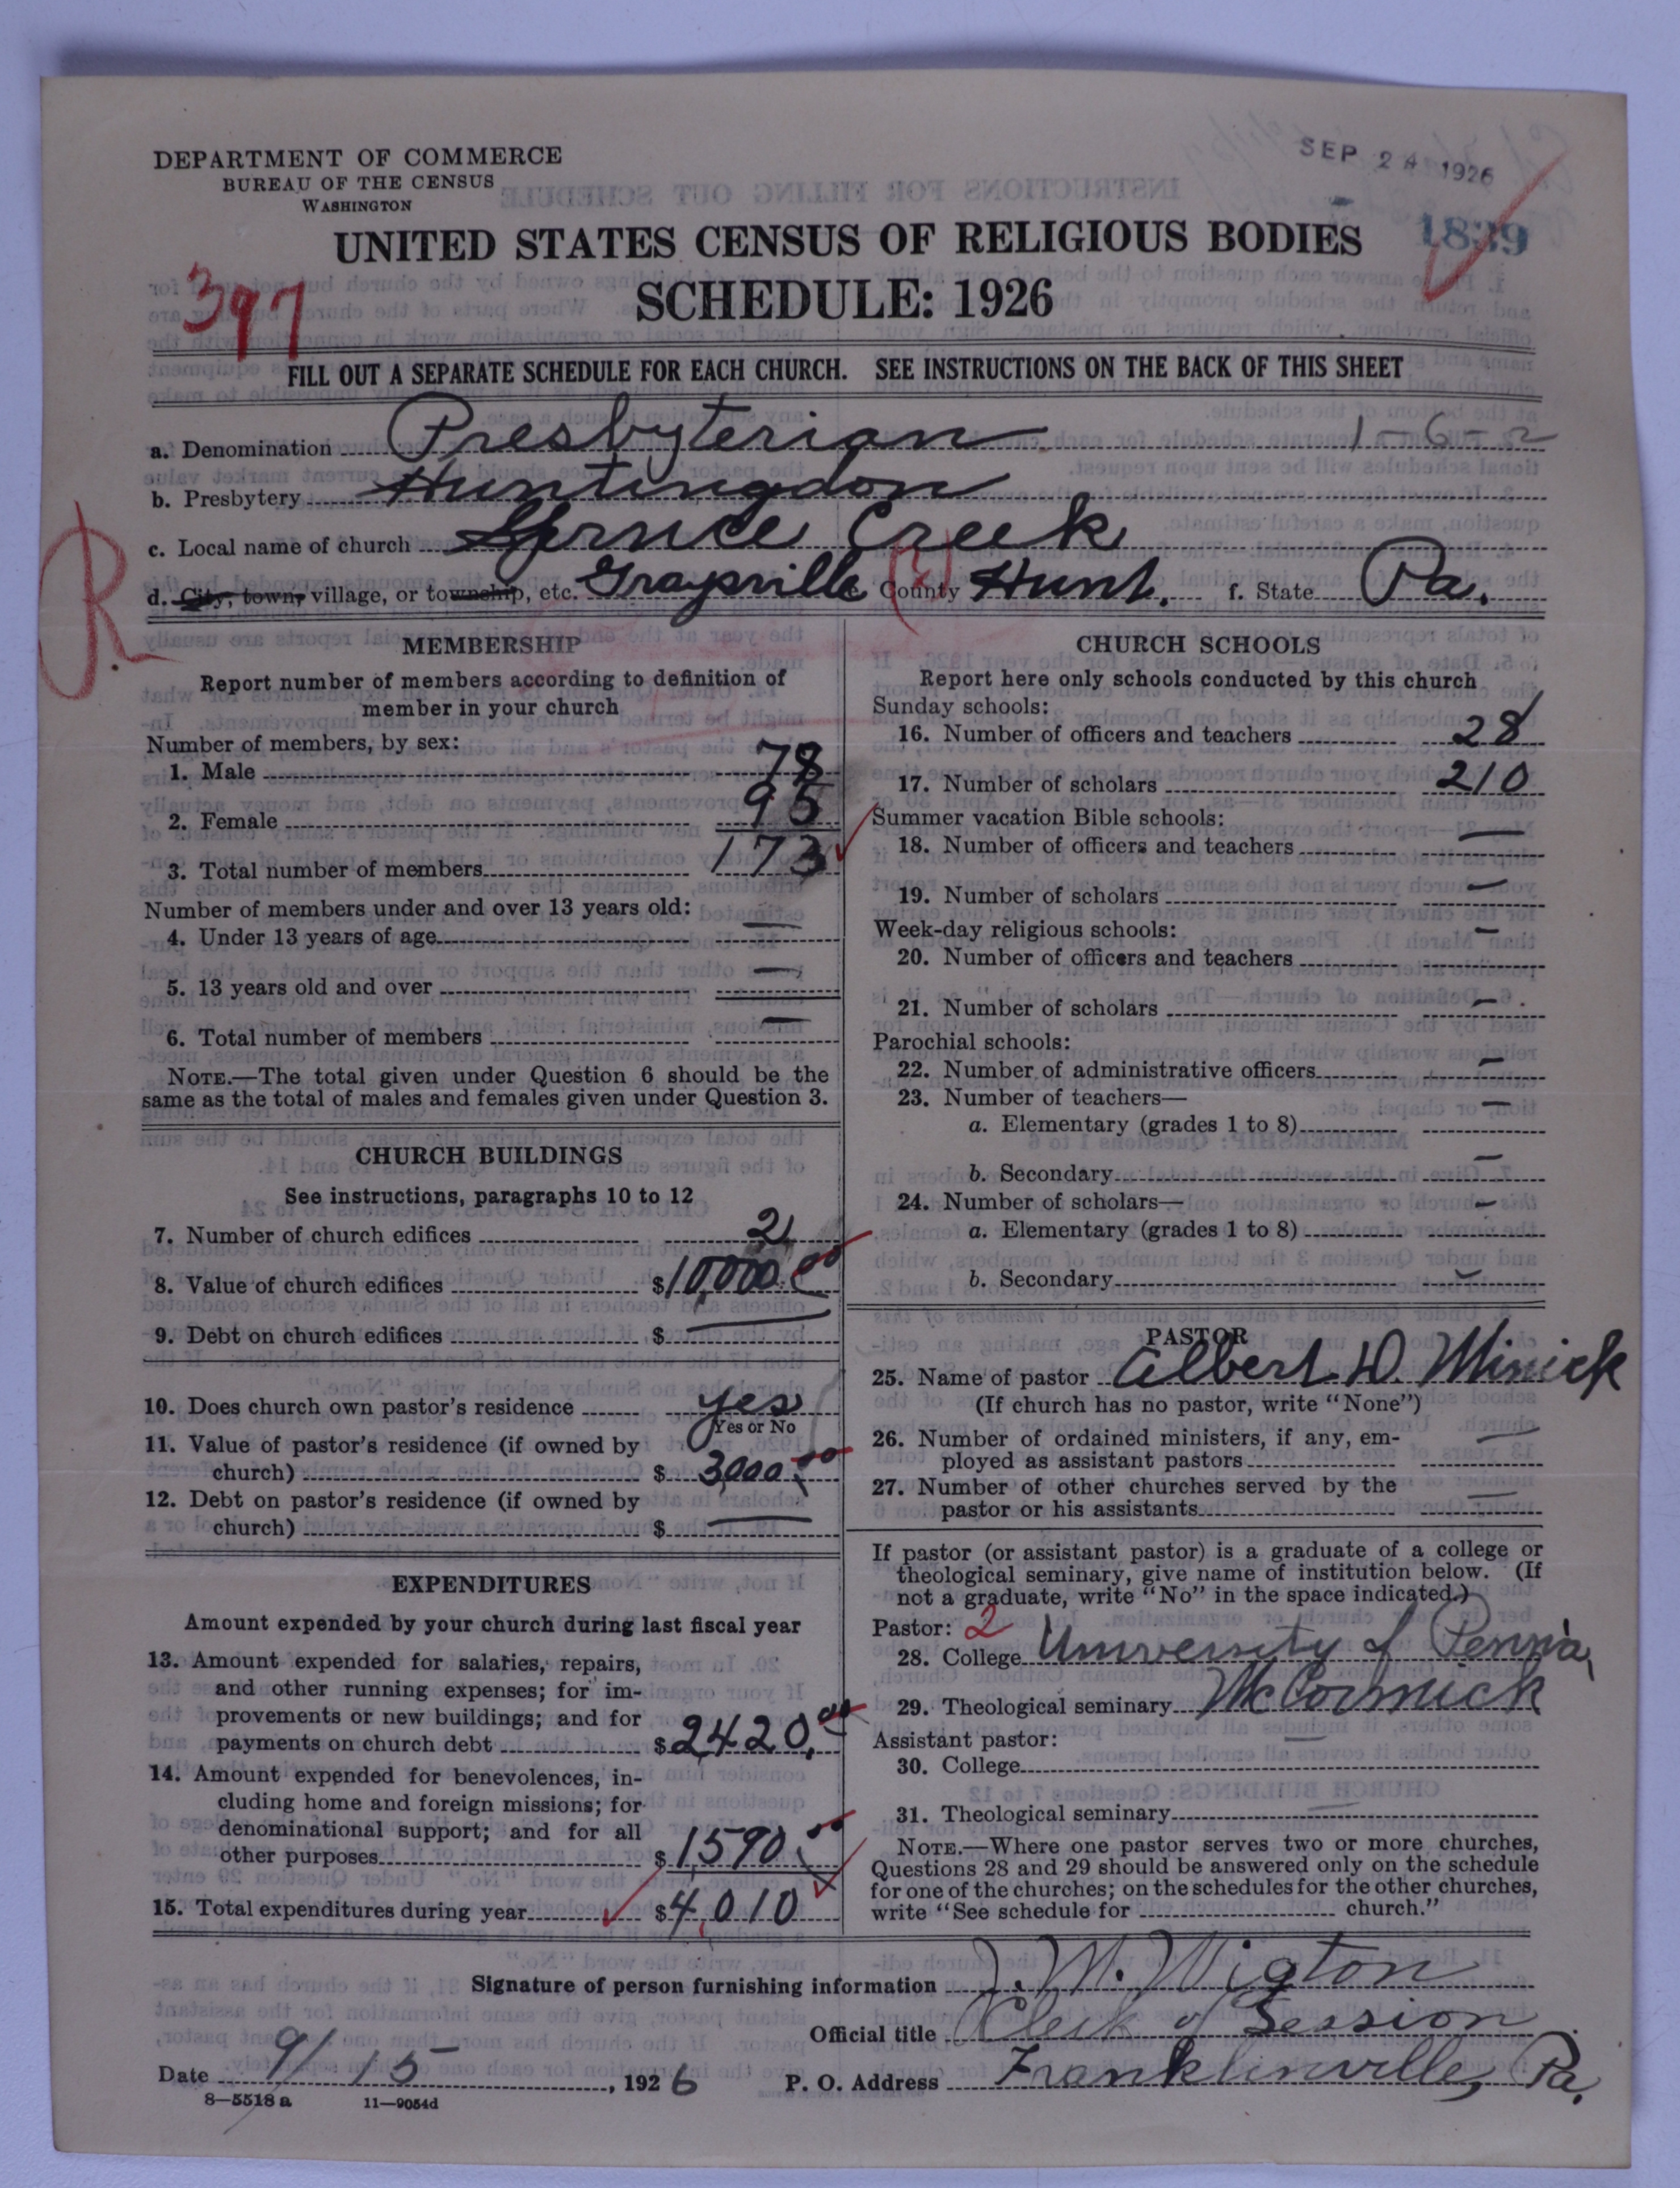 DEPARTMENT OF COMMERCE
BUREAU OF THE CENSUS
WASHINGTON
SEP 24 1926
1839
UNITED STATES CENSUS OF RELIGIOUS BODIES
SCHEDULE: 1926
397
FILL OUT A SEPARATE SCHEDULE FOR EACH CHURCH. SEE INSTRUCTIONS ON THE BACK OF THIS SHEET
a. Denomination Presbyterian 1-6-2
b. Presbytery Huntingdon
c. Local name of church Spruce Creek
d. City, town, village, or township, etc. Graysville County Hunt. f. State Pa.
R.
MEMBERSHIP
Report number of members according to definition of
member in your church
Number of members, by sex:
1. Male 78
2. Female 95
3. Total number of members 173
Number of members under and over 13 years old:
4. Under 13 years of age —
5. 13 years old and over —
6. Total number of members —
NOTE.—The total given under Question 6 should be the
same as the total of males and females given under Question 3.
CHURCH BUILDINGS
See instructions, paragraphs 10 to 12
7. Number of church edifices 2
8. Value of church edifices $10,000.00
9. Debt on church edifices $ —
10. Does church own pastor's residence yes
Yes or No
11. Value of pastor's residence (if owned by
church) $ 3,000.00
12. Debt on pastor's residence (if owned by
church) $ —
EXPENDITURES
Amount expended by your church during last fiscal year
13. Amount expended for salaries, repairs,
and other running expenses; for im-
provements or new buildings; and for
payments on church debt $2,420.00
14. Amount expended for benevolences, in-
cluding home and foreign missions; for
denominational support; and for all
other purposes $1,590.00
15. Total expenditures during year $4,010
CHURCH SCHOOLS
Report here only schools conducted by this church
Sunday schools:
16. Number of officers and teachers 28
17. Number of scholars 210
Summer vacation Bible schools:
18. Number of officers and teachers —
19. Number of scholars —
Week-day religious schools:
20. Number of officers and teachers —
21. Number of scholars —
Parochial schools:
22. Number of administrative officers —
23. Number of teachers—
a. Elementary (grades 1 to 8) —
b. Secondary —
24. Number of scholars—
a. Elementary (grades 1 to 8) —
b. Secondary —
PASTOR
25. Name of pastor Albert D. Minick
(If church has no pastor, write "None")
26. Number of ordained ministers, if any, em-
ployed as assistant pastors —
27. Number of other churches served by the
pastor or his assistants —
If pastor (or assistant pastor) is a graduate of a college or
theological seminary, give name of institution below. (If
not a graduate, write "No" in the space indicated.)
Pastor: 2
28. College University of Penn'a,
29. Theological seminary McCormick
Assistant pastor:
30. College —
31. Theological seminary —
NOTE.—Where one pastor serves two or more churches,
Questions 28 and 29 should be answered only on the schedule
for one of the churches; on the schedules for the other churches,
write "See schedule for church."
Signature of person furnishing information J. M. Wigton
Official title Clerk of Session
Date 9/15, 1926 P. O. Address Franklinville, Pa.
8—5518 a 11—9054d